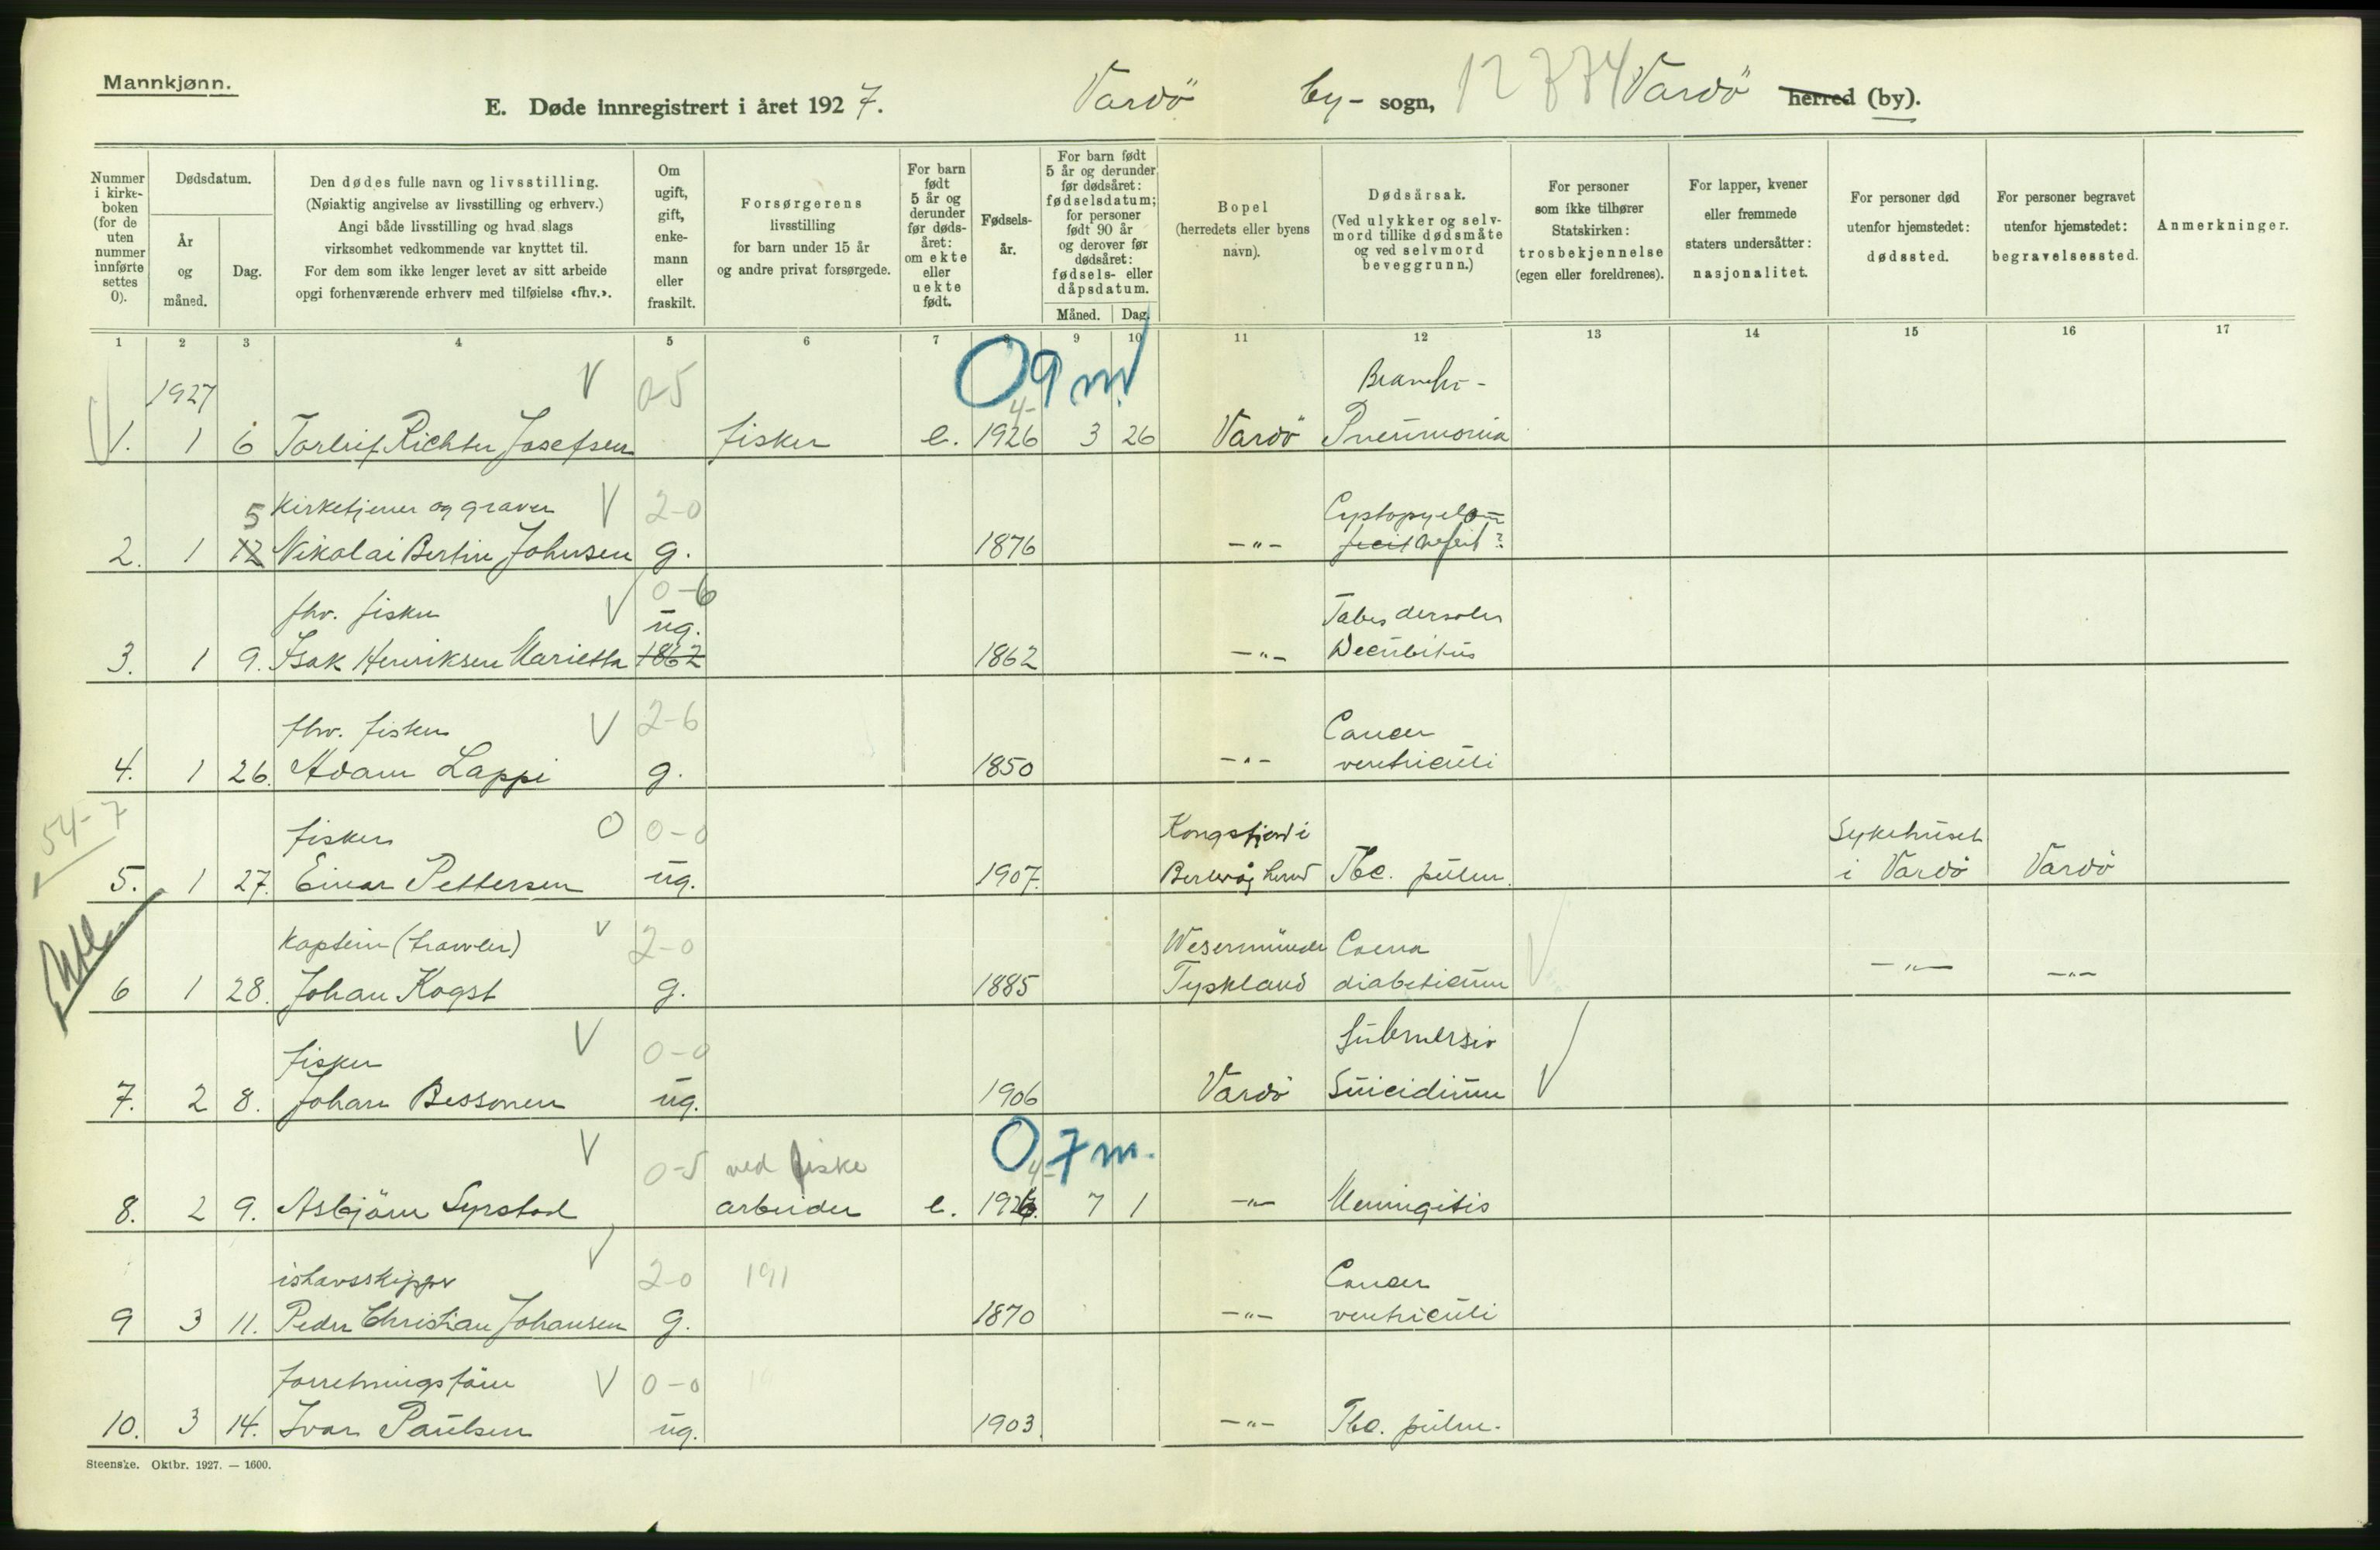 Mannkjønn.
E. Døde innregistrert i året 1927. Vardö by- sogn, 12 774 Vardö herred (by).
Nummer i kirke-boken (for de uten nummer innførte settes 0).
Dødsdatum.
År og måned.
Dag.
Den dødes fulle navn og livsstilling.
(Nøiaktig angivelse av livsstilling og erhverv.)
Angi både livsstilling og hvad slags
virksomhet vedkommende var knyttet til.
For dem som ikke lenger levet av sitt arbeide
opgi forhenværende erhverv med tilføielse «fhv.».
Om ugift, gift, enke-mann eller fraskilt.
Forsørgerens
livsstilling
for barn under 15 år
og andre privat forsørgede.
For barn født 5 år og derunder før døds-året: om ekte eller uekte født.
Fødsels-år.
For barn født 5 år og derunder før dødsåret: fødselsdatum; for personer født 90 år og derover før dødsåret: fødsels- eller dåpsdatum.
Måned. Dag.
Bopel
(herredets eller byens navn).
Dødsårsak.
(Ved ulykker og selv-mord tillike dødsmåte og ved selvmord beveggrunn.)
For personer som ikke tilhører Statskirken: trosbekjennelse (egen eller foreldrenes).
For lapper, kvener eller fremmede staters undersåtter: nasjonalitet.
For personer død utenfor hjemstedet: dødssted.
For personer begravet utenfor hjemstedet: begravelsessted.
Anmerkninger.
1 2 3 4 5 6 7 8 9 10 11 12 13 14 15 16 17
09 m
1927 V 0-5 Broncho-
1. 1 6 Torleif Richter Josefsen fisker e. 4- 1926 3 26 Vardö Pneumonia
5 Kirketjener og graver V 2-0
2. 1 12 Nikolai Bertin Johnsen g. 1876 -"-
fhv. fisker V 0-6 ug. Tabes dorsales
3. 1 9. Isak Henriksen Marietta 1862 1862 -"- Decubitus
fhv. fisker V 2-6 Cancer
4. 1 26. Adam Lappi g. 1850 -"- ventriculi
54-7
fisker O 0-0 Kongsfjord i Sykehuset
5. 1 27. Einar Pettersen ug. 1907. Berlevåg herred Tbc. pulm. i Vardö Vardö
Kaptein (trawler) V 2-0 Wesermünde Coma
6 1 28. Johan Kogst g. 1885 Tyskland diabeticum -"- -"-
fisker V 0-0 Submersio
7. 2 8. Johan Bessonen ug. 1906 Vardö Suicidium
0 7 m.
V 0-5 ved fiske 4-
8. 2 9. Asbjörn Syrstad arbeider e. 1926. 7 1 -"- Meningitis
ishavsskipper V 2-0 191 Cancer
9 3 11. Peder Christian Johansen g. 1870 -"- ventriculi
forretningsförer V 0-0
10. 3 14. Ivar Paulsen ug. 1903. -"- Tbc. pulm.
Steenske. Oktbr. 1927. — 1600.